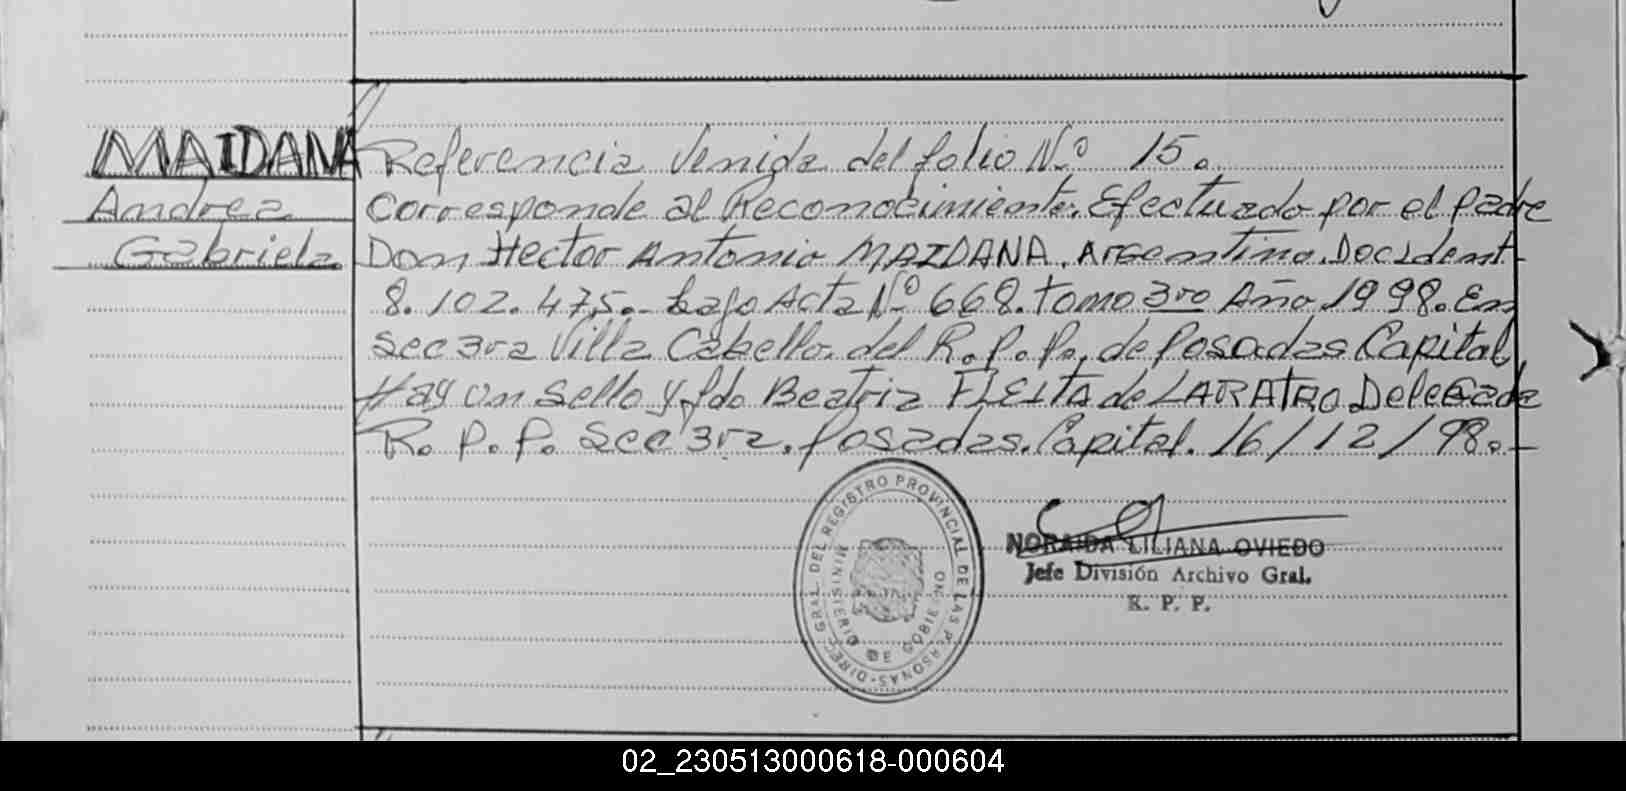 MAIDANA
Andrea
Gabriela
Referencia Venida del folio Nº 15.
Corresponde al Reconocimiento. Efectuado por el Padre
Don Hector Antonio MAIDANA. Argentino. Doc. Ident
8.102.475.- bajo Acta Nº 668. tomo 3ro Año 1998. En
Sec 3ra Villa Cabello. del R.P.P. de Posadas Capital
Hay un sello y fdo Beatriz FLEITA de LARATRO Delegada
R.P.P. Sec 3ra. Posadas. Capital. 16/12/98.-
DIREC. GRAL. DEL REGISTRO PROVINCIAL DE LAS PERSONAS-
MINISTERIO DE GOBIERNO
NORAIDA LILIANA OVIEDO
Jefe División Archivo Gral.
R. P. P.
02_230513000618-000604